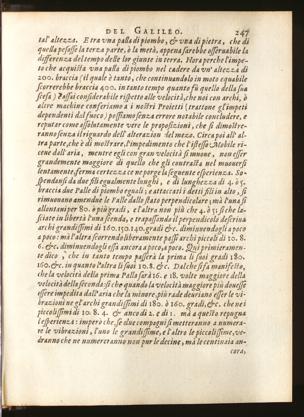 DEL GALILEO. 247
tal'altezza. E tra vna palla di piombo, & vna di pietra, che di
quella pesasse la terza parte, ò la metà, appena sarebbe osseruabile la
differenza del tempo delle lor giunte in terra. Hora perche l'impe-
to che acquista vna palla di piombo nel cadere da vn'altezza di
200. braccia (il quale è tanto, che continuandolo in moto equabile
scorrerebbe braccia 400. in tanto tempo quanto fù quello della sua
scesa) è assai considerabile rispetto alle velocità, che noi con archi, ò
altre machine conferiamo a i nostri Proietti (trattone gl'impeti
dependenti dal fuoco) possiamo senza errore notabile concludere, e
reputar come assolutamente vere le proposizioni, che si dimostre-
ranno senza il riguardo dell'alterazion del mezo. Circa poi all'al-
tra parte, che è di mostrare, l'impedimento che l'istesso Mobile ri-
ceue dall'aria, mentre egli con gran velocità si muoue, non esser
grandemente maggiore di quello che gli contrasta nel muouersi
lentamente, ferma certezza ce ne porge la seguente esperienza. So-
spendansi da due fili egualmente lunghi, e di lunghezza di 4. ò 5.
braccia due Palle di piombo eguali; e attaccati i detti fili in alto, si
rimuouano amendue le Palle dallo stato perpendicolare; mà l'una si
allontani per 80. ò più gradi, e l'altra non più che 4. ò 5. sì che la-
sciate in libertà l'una scenda, e trapassando il perpendicolo descriua
archi grandissimi di 160. 150. 140. gradi &c. diminuendogli a poco
a poco: mà l'altra scorrendo liberamente passi archi piccoli di 10. 8.
6. &c. diminuendogli essa ancora a poco, a poco. Quì primieramen-
te dico, che in tanto tempo passerà la prima li suoi gradi 180.
160. &c. in quanto l'altra li suoi 10. 8. &c. Dal che si fà manifesto,
che la velocità della prima Palla sarà 16. e 18. volte maggiore della
velocità della seconda: sì che quando la velocità maggiore più douesse
essere impedita dall'aria che la minore, più rade deuriano esser le vi-
brazioni ne gl'archi grandissimi di 180. ò 160. gradi, &c. che nei
piccolissimi di 10. 8. 4. & anco di 2. e di 1. mà a questo repugna
l'esperienza: imperò che se due compagni si metteranno a numera-
re le vibrazioni, l'uno le grandissime, e l'altro le piccolissime, ve-
dranno che ne numereranno non pur le decine, mà le centinaia an-
cora,